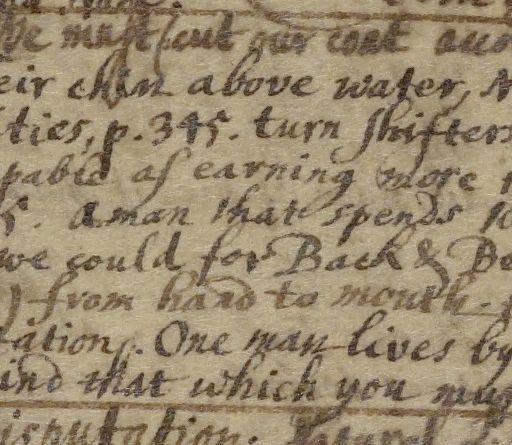 We must cut our coat
eir chin above water,
ties, p. 345. turn shifters
pable of earning more
5. A man that spends
we could for Back & Be
) from hand to mouth.
tation. One man lives by
ind that which you mus
isputation.